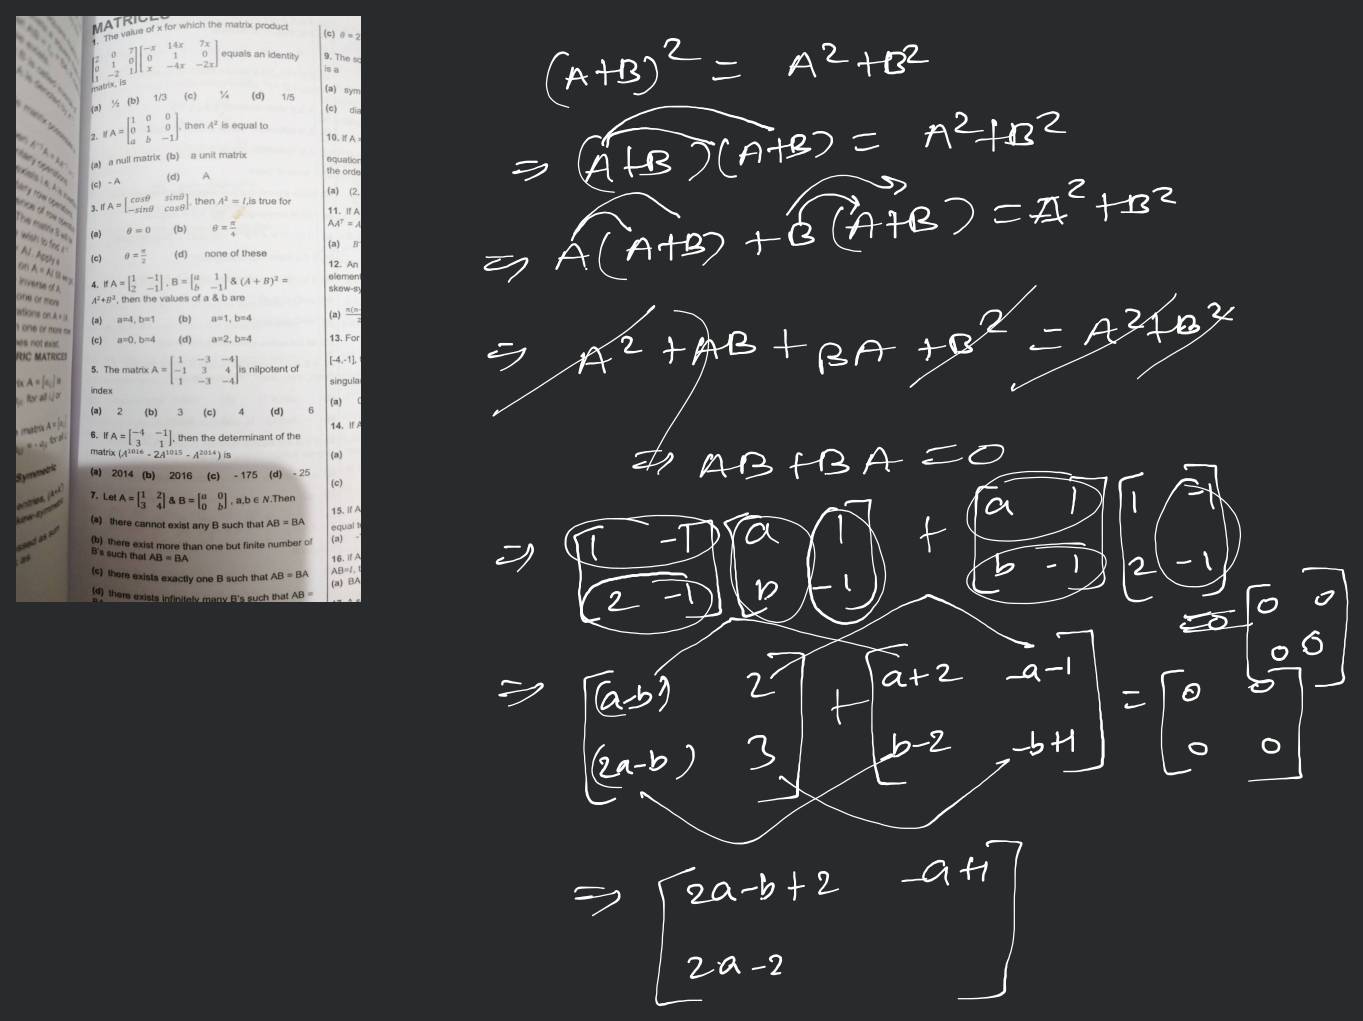 MATRICES
1. The value of x for which the matrix product
[2 0 7; 0 1 0; 1 -2 1][-x 14x 7x; 0 1 0; x -4x -2x] equals an identity
matrix, is
(a) ½ (b) 1/3 (c) ¼ (d) 1/5
2. If A = [1 0 0; 0 1 0; a b -1], then A² is equal to
(a) a null matrix (b) a unit matrix
(c) - A (d) A
3. If A = [cosθ sinθ; -sinθ cosθ], then A² = I, is true for
(a) θ = 0 (b) θ = π/4
(c) θ = π/2 (d) none of these
4. If A = [1 -1; 2 -1], B = [a 1; b -1] & (A + B)² =
A²+B², then the values of a & b are
(a) a=4, b=1 (b) a=1, b=4
(c) a=0, b=4 (d) a=2, b=4
5. The matrix A = [1 -3 -4; -1 3 4; 1 -3 -4] is nilpotent of
index
(a) 2 (b) 3 (c) 4 (d) 6
6. If A = [-4 -1; 3 1], then the determinant of the
matrix (A¹⁰¹⁶ - 2A¹⁰¹⁵ - A²⁰¹⁴) is
(a) 2014 (b) 2016 (c) - 175 (d) - 25
7. Let A = [1 2; 3 4] & B = [a 0; 0 b], a,b ∈ N. Then
(a) there cannot exist any B such that AB = BA
(b) there exist more than one but finite number of
B's such that AB = BA
(c) there exists exactly one B such that AB = BA
(d) there exists infinitely many B's such that AB =
(c) θ = 2
9. The
is a
(a) sym
(c) dia
10. If A
equation
the orde
(a) (2,
11. If A
(a) B
12. An
element
skew-sy
(a)
13. For
[-4,-1],
singula
(a)
14. If A
(a)
(c)
15. If A
equal t
(a)
16. If A
AB=I,
(a) BA
(A+B)² = A²+B²
⇒ (A+B)(A+B) = A²+B²
⇒ A(A+B) + B(A+B) = A²+B²
⇒ A² + AB + BA + B² = A²+B²
⇒ AB + BA = 0
⇒ [1 -1; 2 -1][a 1; b -1] + [a 1; b -1][1 -1; 2 -1] = [0 0; 0 0]
⇒ [(a-b) 2; (2a-b) 3] + [a+2 -a-1; b-2 -b+1] = [0 0; 0 0]
⇒ [2a-b+2 -a+1; 2a-2]